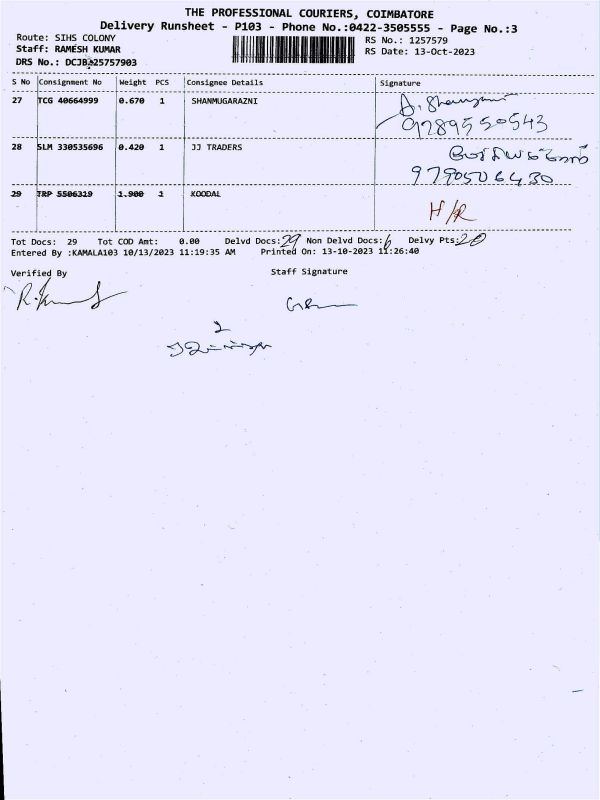 THE PROFESSIONAL COURIERS, COIMBATORE
Delivery Runsheet - P103 - Phone No.:0422-3505555 - Page No.:3
Route: SIHS COLONY
RS No.: 1257579
Staff: RAMESH KUMAR
RS Date: 13-Oct-2023
DRS No.: DCJBA25757903
S No Consignment No Weight PCS Consignee Details Signature
27 TCG 40664999 0.670 1 SHANMUGARAZNI
9789550543
28 SLM 330535696 0.420 1 JJ TRADERS
9790506430
29 TRP 5506319 1.900 1 KOODAL
H/R
Tot Docs: 29 Tot COD Amt: 0.00 Delvd Docs: 29 Non Delvd Docs: 6 Delvy Pts: 20
Entered By :KAMALA103 10/13/2023 11:19:35 AM Printed On: 13-10-2023 11:26:40
Verified By Staff Signature
2